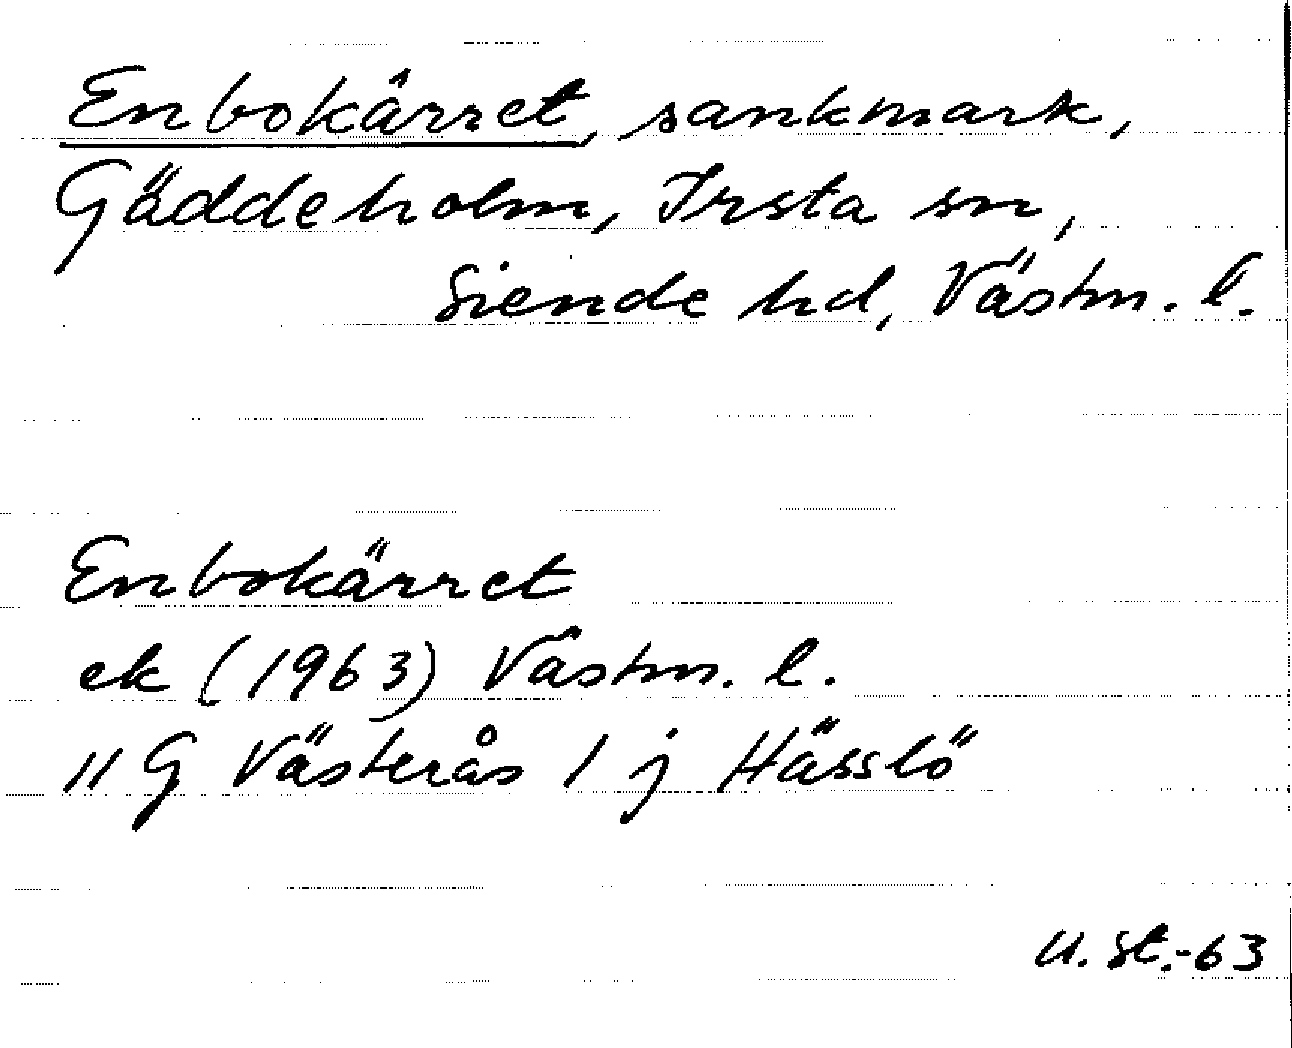 Enbokärret, sankmark,
Gäddeholm, Irsta sn,
Siende hd, Västm. l.
Enbokärret
ek (1963) Västm. l.
11 G Västerås 1 j Hässlö
U. St.-63